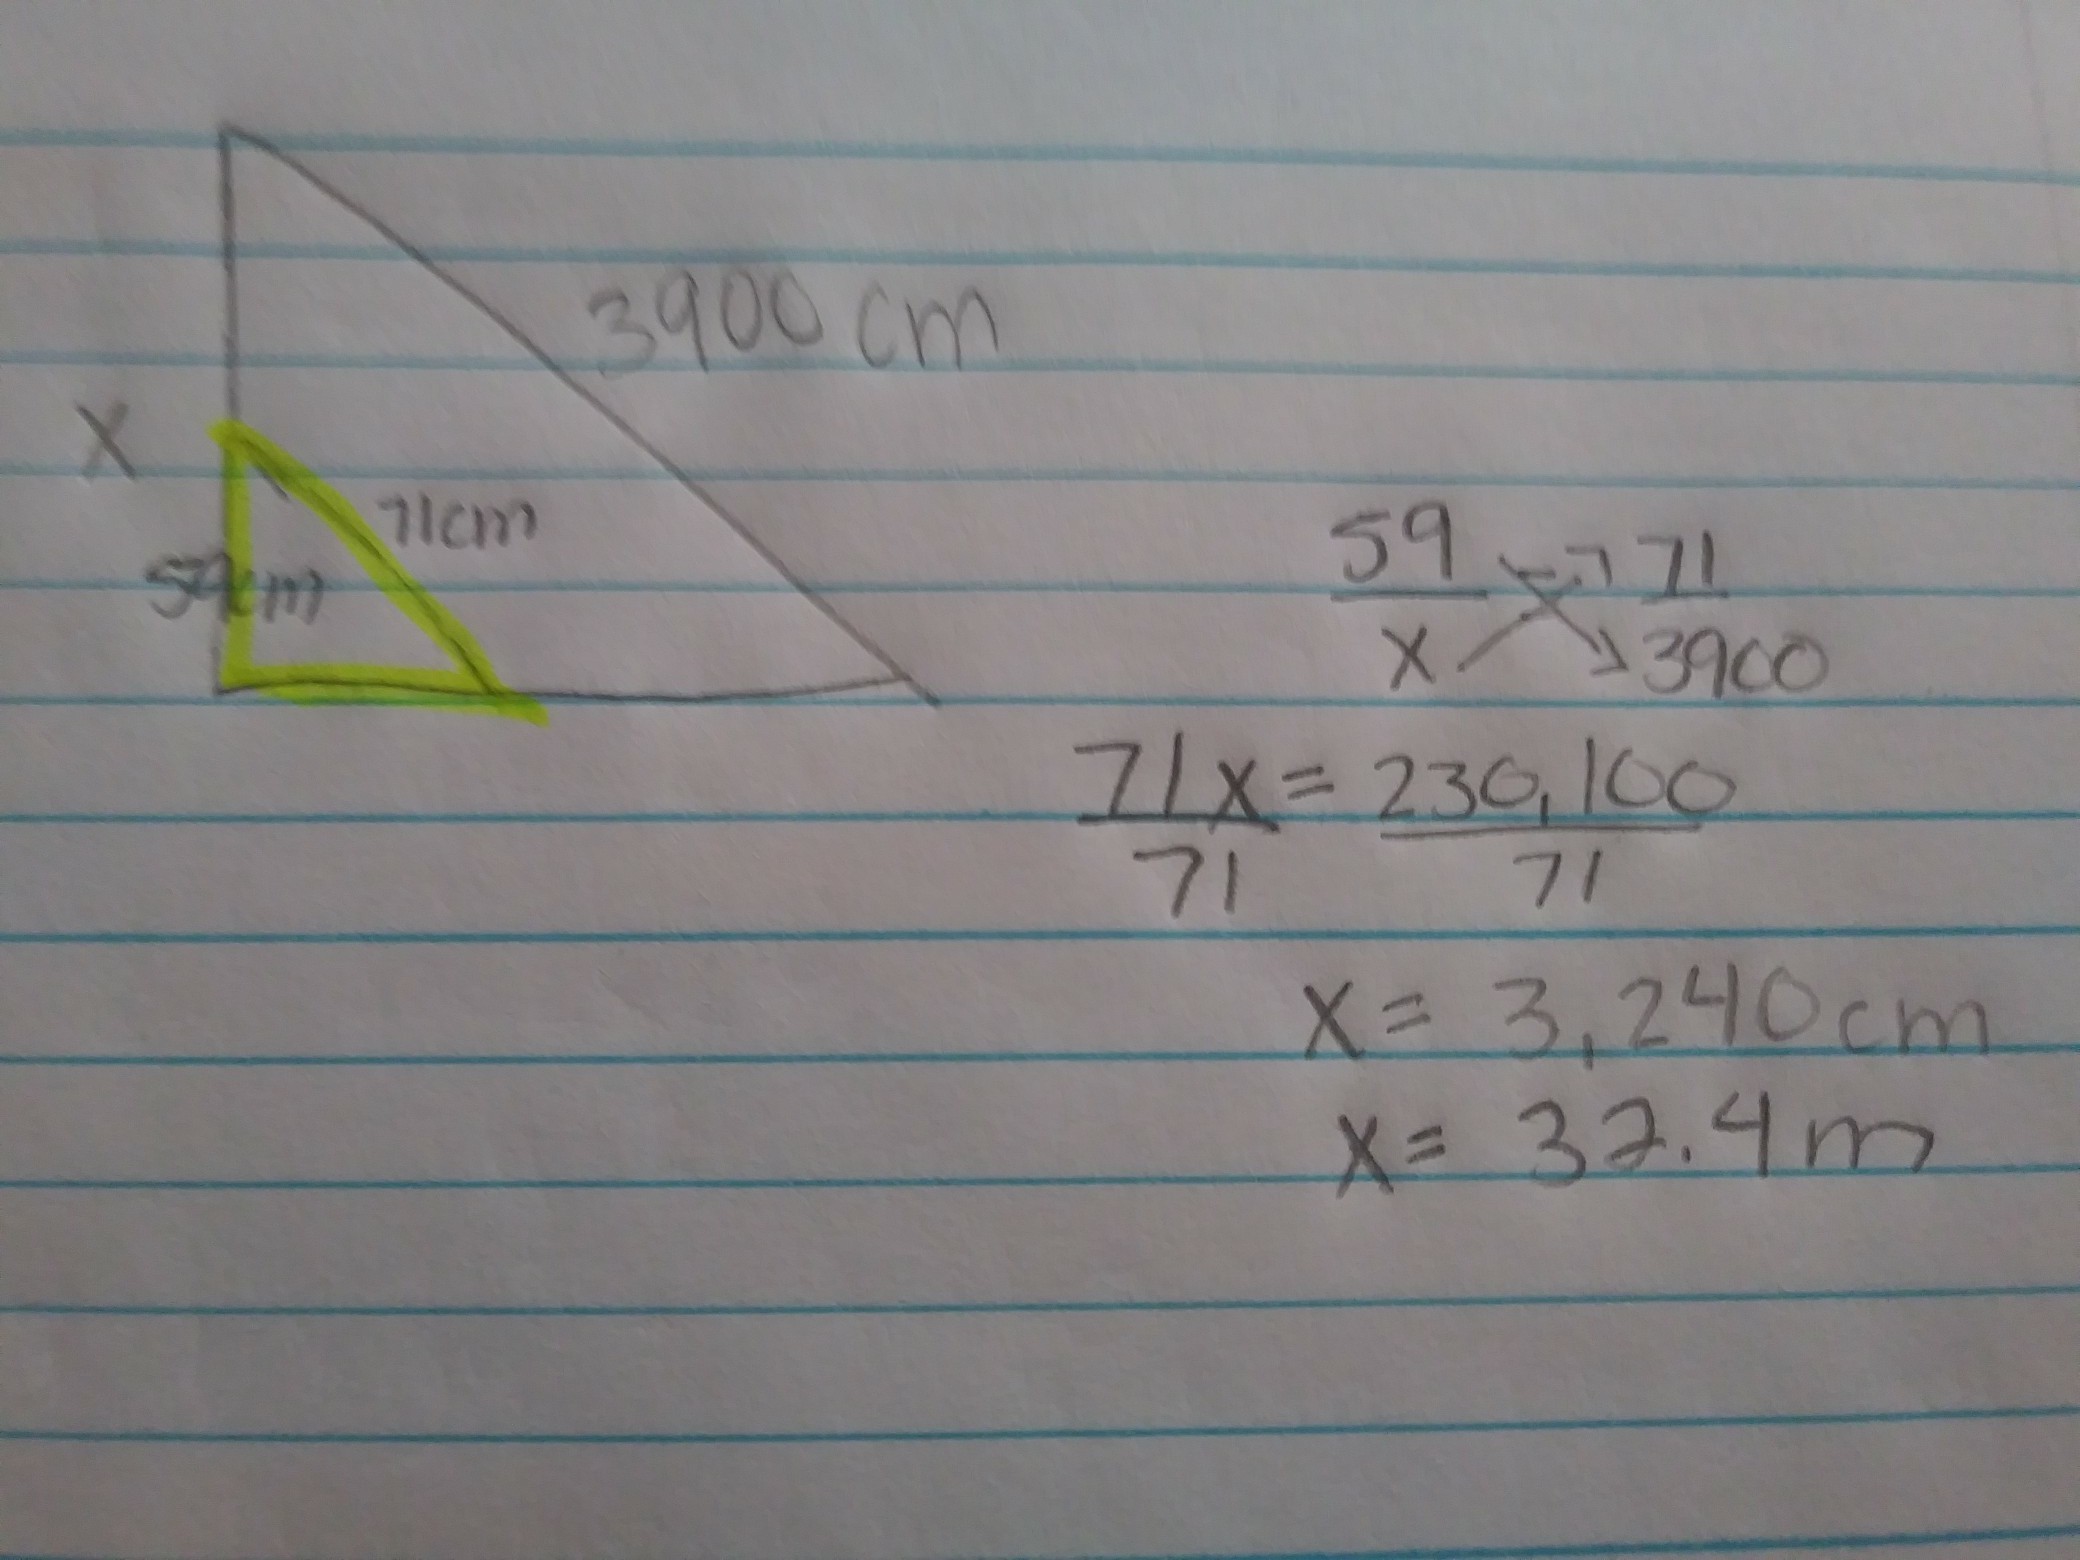 3900 cm
X
71cm
59cm
59 71
x 3900
71x = 230,100
71 71
x = 3,240cm
x = 32.4m